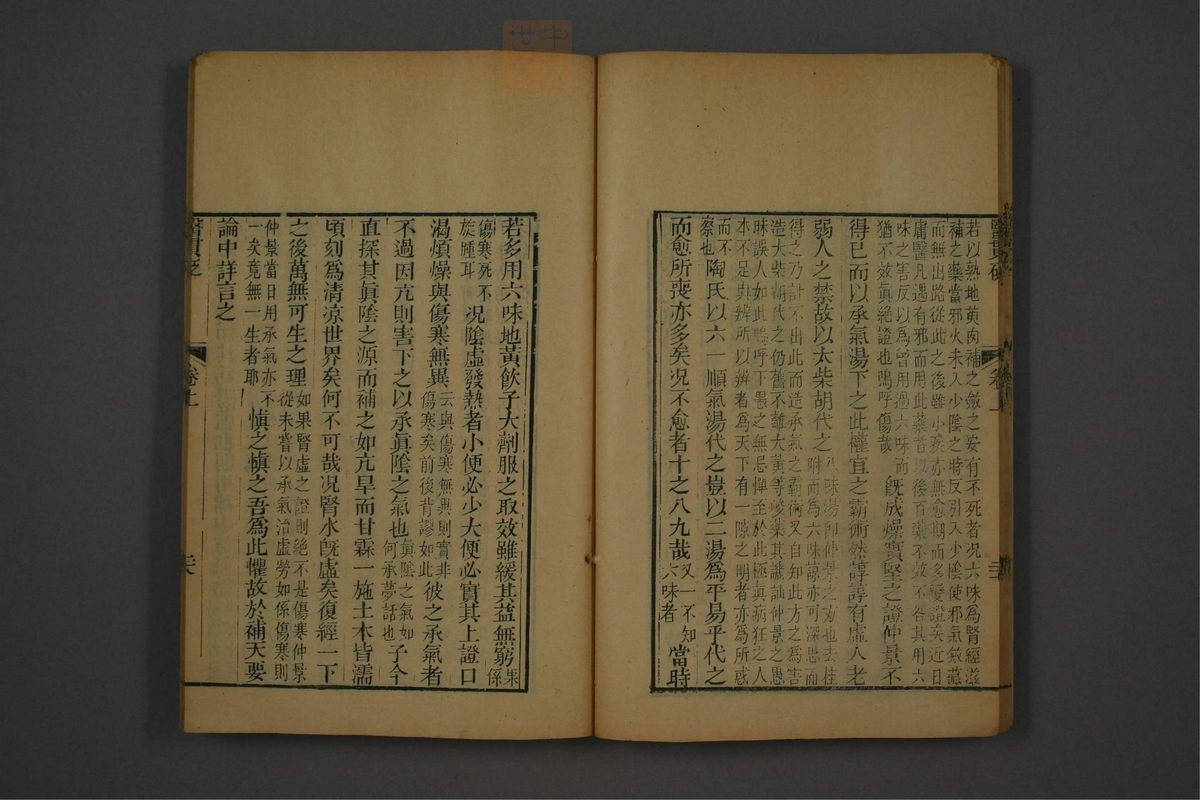 若以熟地萸肉補之斂之安有不死者況六味爲腎經滋
補之藥當邪火未入少陰之時反引入少陰使邪氣斂藏
而無出路從此之後雖小疾亦無愈期而多變證矣近日
庸醫凡遇有邪而用此藥者以後百藥不效不咎其用六
味之害反以爲曾用過六味而
猶不效眞絶證也嗚呼傷哉
旣成燥實堅之證仲景不
得已而以承氣湯下之此權宜之霸術然諄諄有虛人老
弱人之禁故以大柴胡代之
八味湯卽仲景之方也去桂
附而爲六味蓋亦可深思而
得之乃計不出此而造承氣之霸術又自知此方之爲害
造大柴胡代之仍舊不離大黃等峻藥其譏訕仲景之愚
昧誤人如此嗚呼下愚之無忌憚至於此極眞病狂之人
本不足與辨所以辨者爲天下有一隙之明者亦爲所惑
察也
陶氏以六一順氣湯代之豈以二湯爲平易乎代之
而愈所喪亦多矣况不愈者十之八九哉
又一不知
六味者
當時
若多用六味地黃飲子大劑服之取效雖緩其益無窮
果係
傷寒死不
旋踵耳
况陰虛發熱者小便必少大便必實其上證口
渴煩燥與傷寒無異
云與傷寒無異則實非
傷寒矣前後背謬如此
彼之承氣者
不過因亢則害下之以承眞陰之氣也
眞陰之氣如
何承夢話也
予今
直探其眞陰之源而補之如亢旱而甘霖一施土木皆濡
頃刻爲清凉世界矣何不可哉况腎水旣虛矣復經一下
之後萬無可生之理
如果腎虛之證則絶不是傷寒仲景
從未嘗以承氣治虛勞如係傷寒則
仲景當日用承氣亦不
一矣竟無一生者耶
愼之愼之吾爲此懼故於補天要
論中詳言之
醫貫砭
卷上